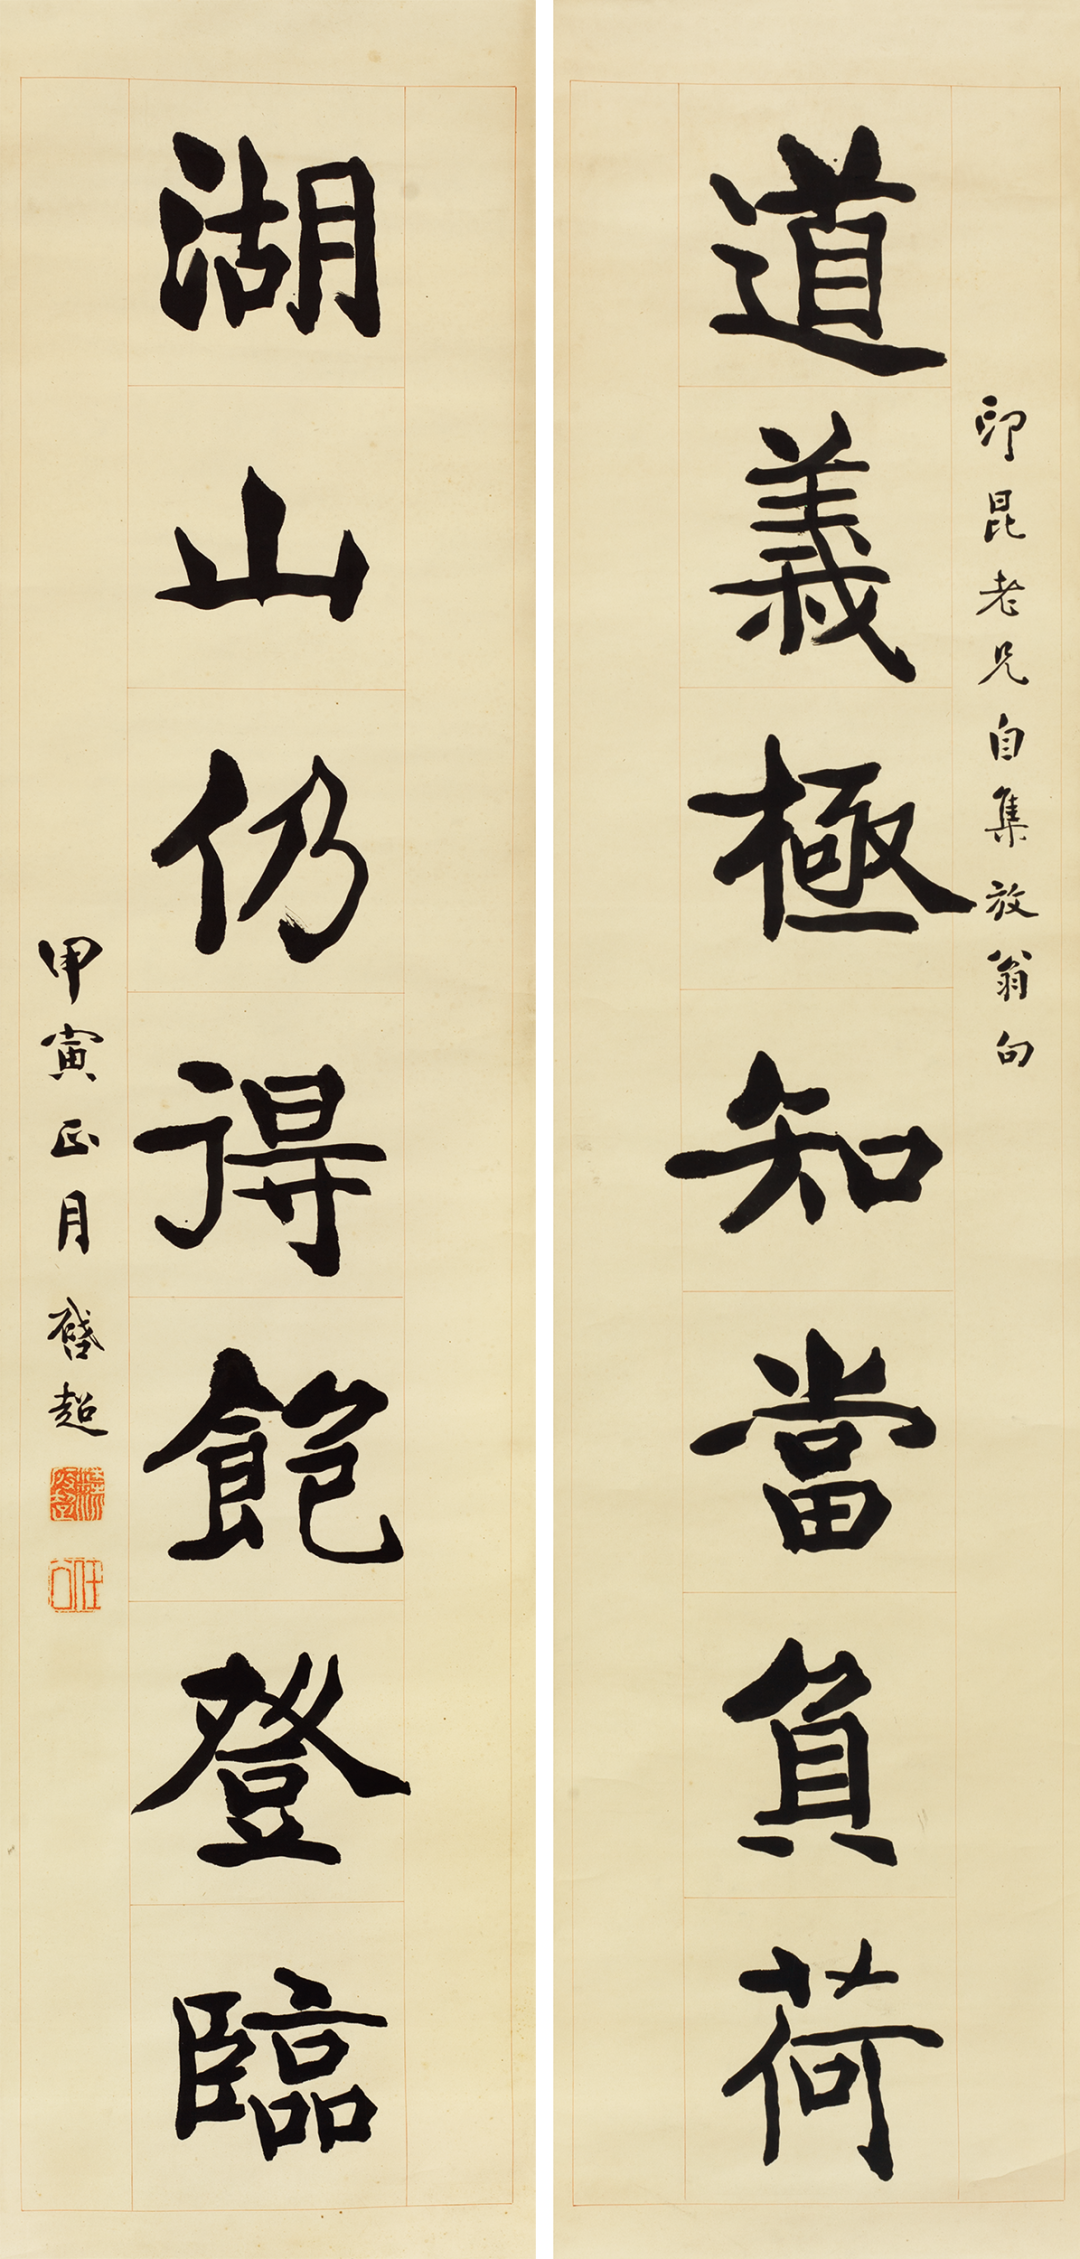 道義極知當負荷
印昆老兄自集放翁句
湖山仍得飽登臨
甲寅正月啓超
任公